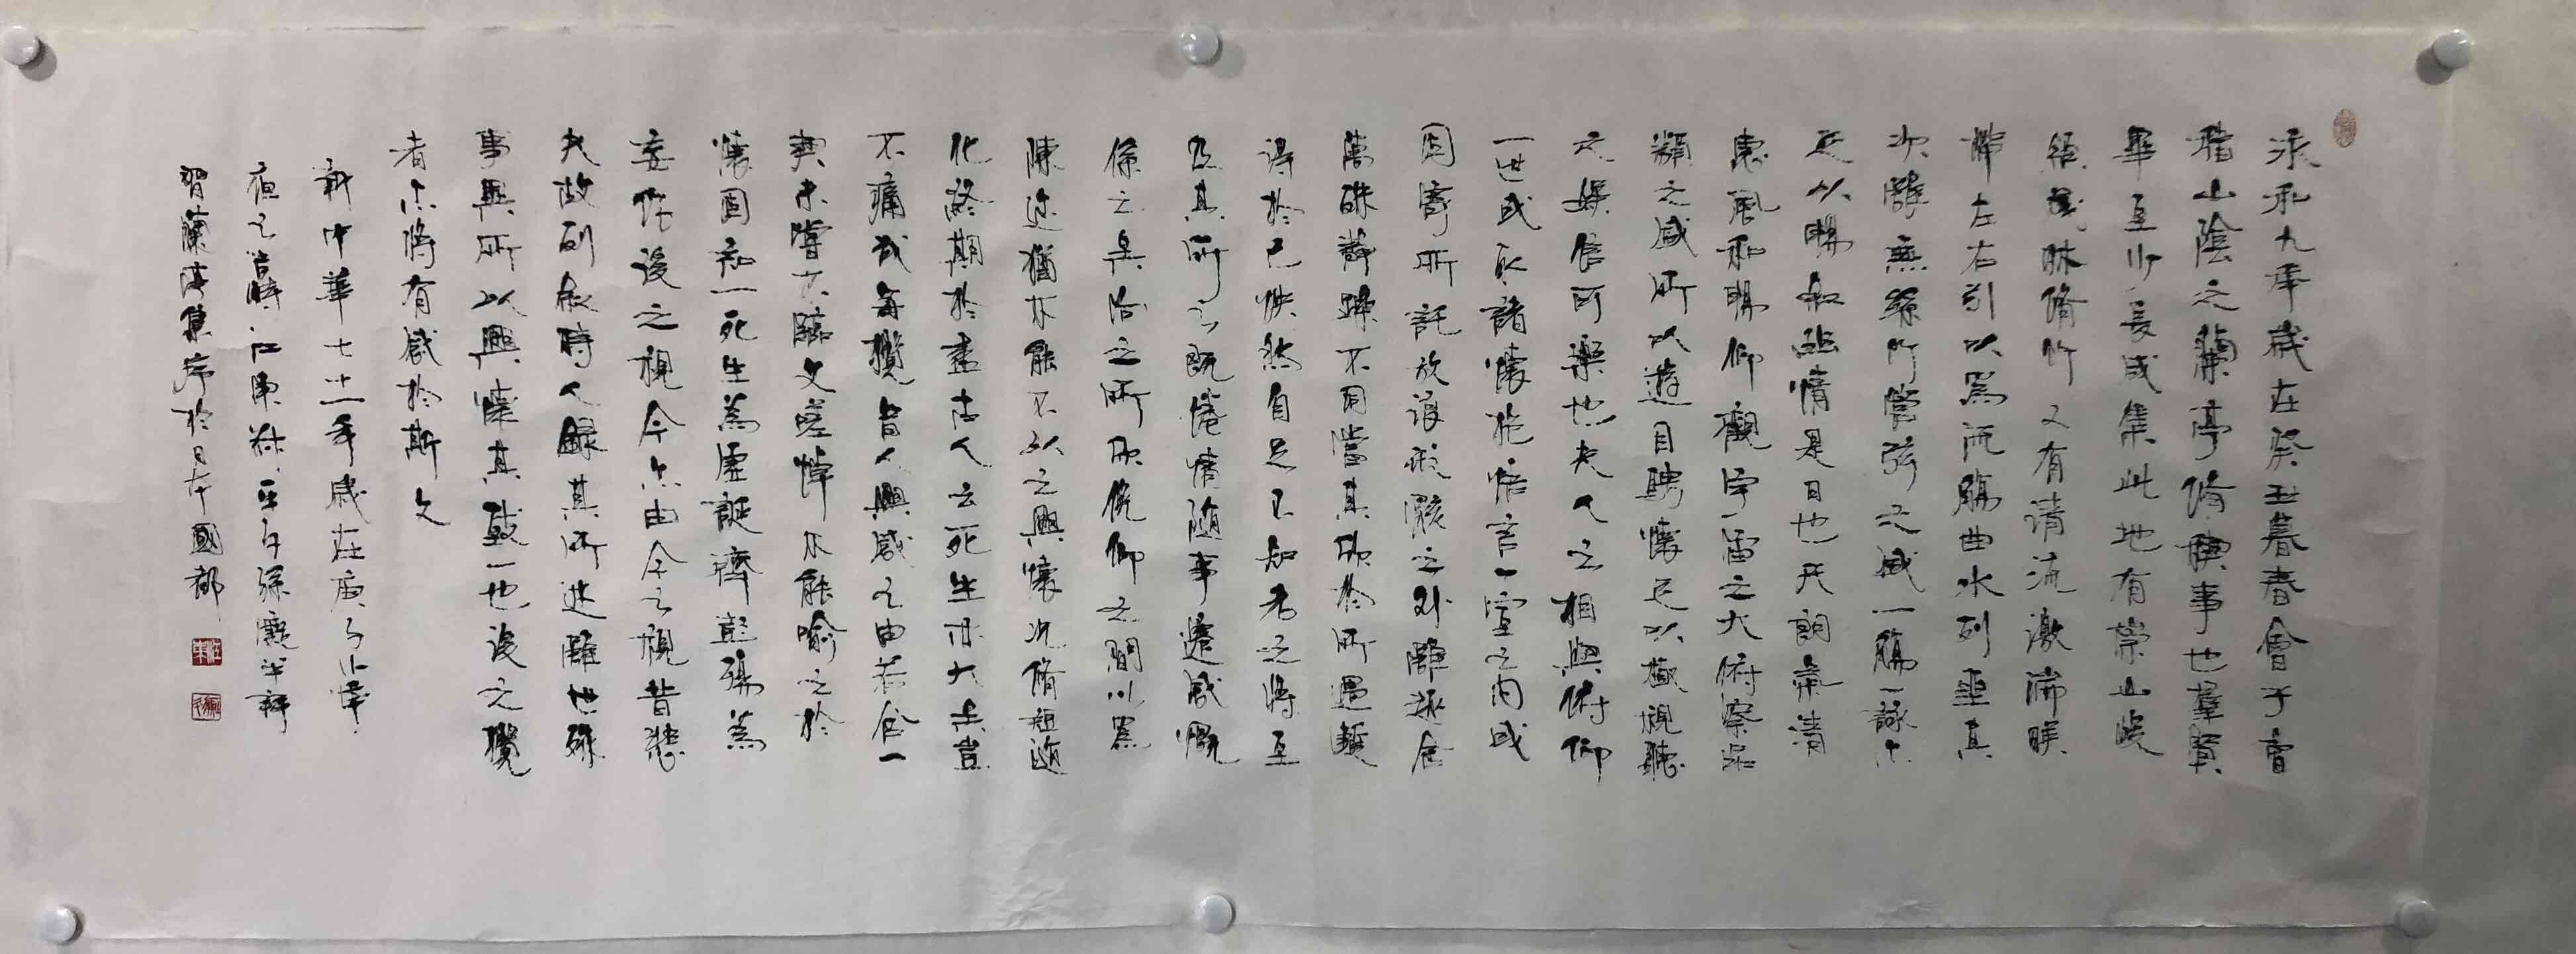 永和九年歲在癸丑暮春會于會
稽山陰之蘭亭脩稧事也羣賢
畢至少長咸集此地有崇山峻
領茂林脩竹又有清流激湍暎
帶左右引以為流觴曲水列坐其
次雖無絲竹管弦之盛一觴一詠亦
足以暢敘幽情是日也天朗氣清
惠風和暢仰觀宇宙之大俯察品
類之盛所以遊目騁懷足以極視聽
之娛信可樂也夫人之相與俯仰
一世或取諸懷抱悟言一室之內或
因寄所託放浪形骸之外雖趣舍
萬殊靜躁不同當其欣於所遇蹔
得於己快然自足不知老之將至
及其所之既惓情隨事遷感慨
係之矣向之所欣俛仰之閒以為
陳迹猶不能不以之興懷況脩短隨
化終期於盡古人云死生亦大矣豈
不痛哉每攬昔人興感之由若合一
契未嘗不臨文嗟悼不能喻之於
懷固知一死生為虛誕齊彭殤為
妄作後之視今亦由今之視昔悲
夫故列敘時人錄其所述雖世殊
事異所以興懷其致一也後之攬
者亦將有感於斯文
新中華七十一年歲在庚子小雪
夜之當時江南
習蘭亭集序於日本國都